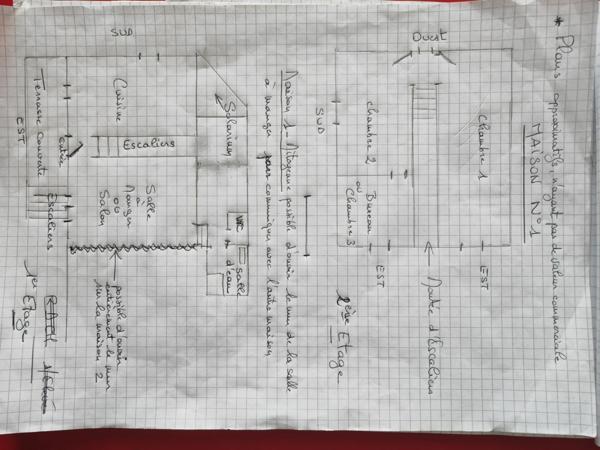 * Plans approximatifs, n'ayant pas de valeur commerciale
MAISON N°1
Ouest
Chambre 1
chambre 2
Bureau
ou
Chambre 3
EST
EST
SUD
Montée d'Escaliers
2ème Etage
Maison 1 - Mitoyenne possible d'ouvrir le mur de la salle
à manger pour communiquer avec l'autre maison
SUD
Solarium
WC
Salle
d'eau
Cuisine
Escaliers
Salle
à
Manger
ou
Salon
Entrée
Terrasse couverte
Escaliers
EST
possible d'ouvrir
entièrement le mur
sur la maison 2
1er
Etage